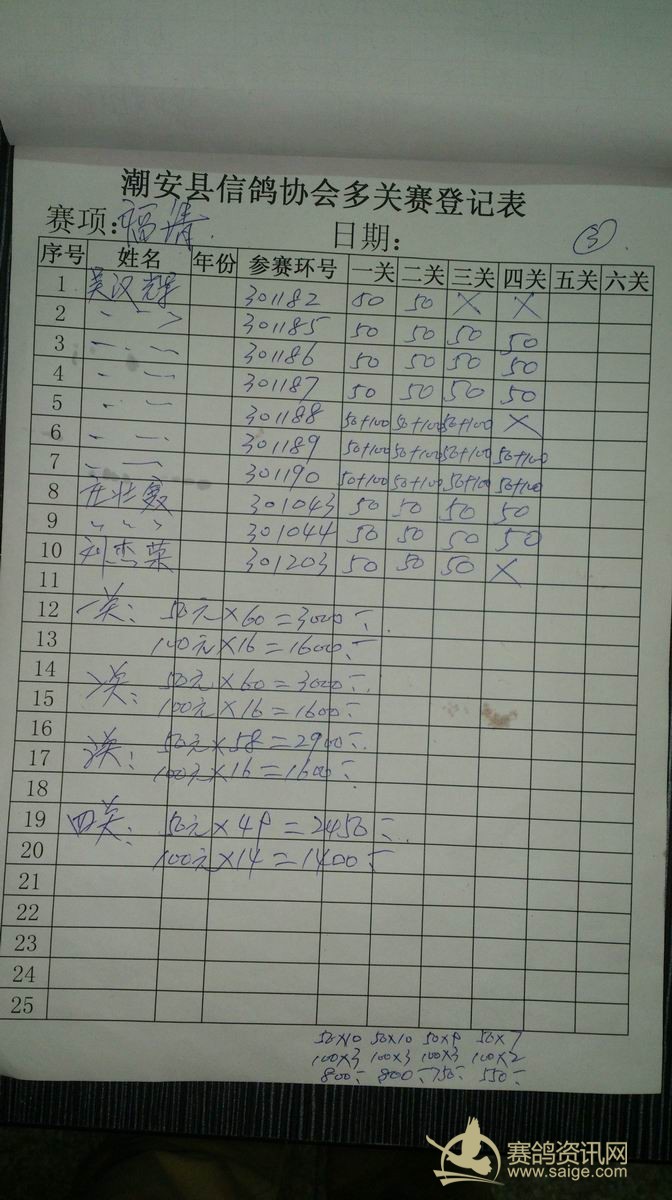 潮安县信鸽协会多关赛登记表
赛项:福清. 日期: ③.
序号 姓名 年份 参赛环号 一关 二关 三关 四关 五关 六关
1 吴汉 301182 50 50 × ×
2 301185 50 50 50 50
3 301186 50 50 50 50
4 301187 50 50 50 50
5 301188 50+100 50+100 50+100 ×
6 301189 50+100 50+100 50+100 50+100
7 301190 50+100 50+100 50+100 50+100
8 301043 50 50 50 50
9 301044 50 50 50 50
10 刘杰荣 301203 50 50 50 ×
11
12 一关: 50元×60=3000
13 100元×16=1600
14 50元×60=3000
15 100元×16=1600
16
17 50元×58=2900
18 100元×16=1600
19 四关: 50元×49=2450
20 100元×14=1400
21
22
23
24
25
50×10 50×10 50×9 50×7
100×3 100×3 100×3 100×2
800 800 750 550
赛鸽资讯网
www.saige.com